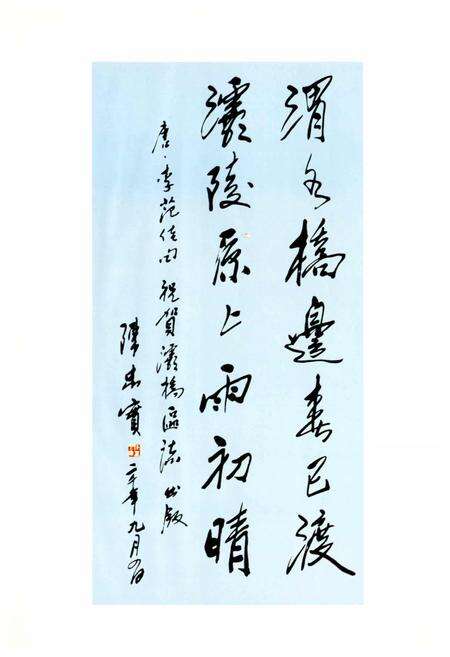 渭水橋邊春已渡
灞陵原上雨初晴
唐·李范佳句 祝賀灞橋區誌出版
陳忠實
年九月日